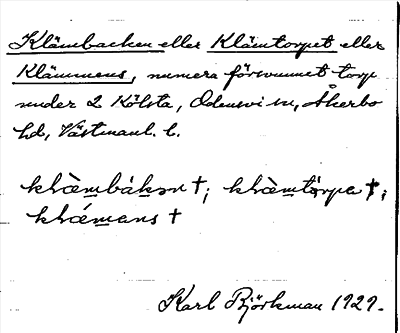 Klämbacken eller Klämtorpet eller
Klämmens, numera försvunnet torp
under 2 Kölsta, Odensvi sn, Åkerbo
hd, Västmanl. l.
klæ̀mbákən †; klæ̀mtårpə †;
klǽmans †
Karl Björkman 1929.